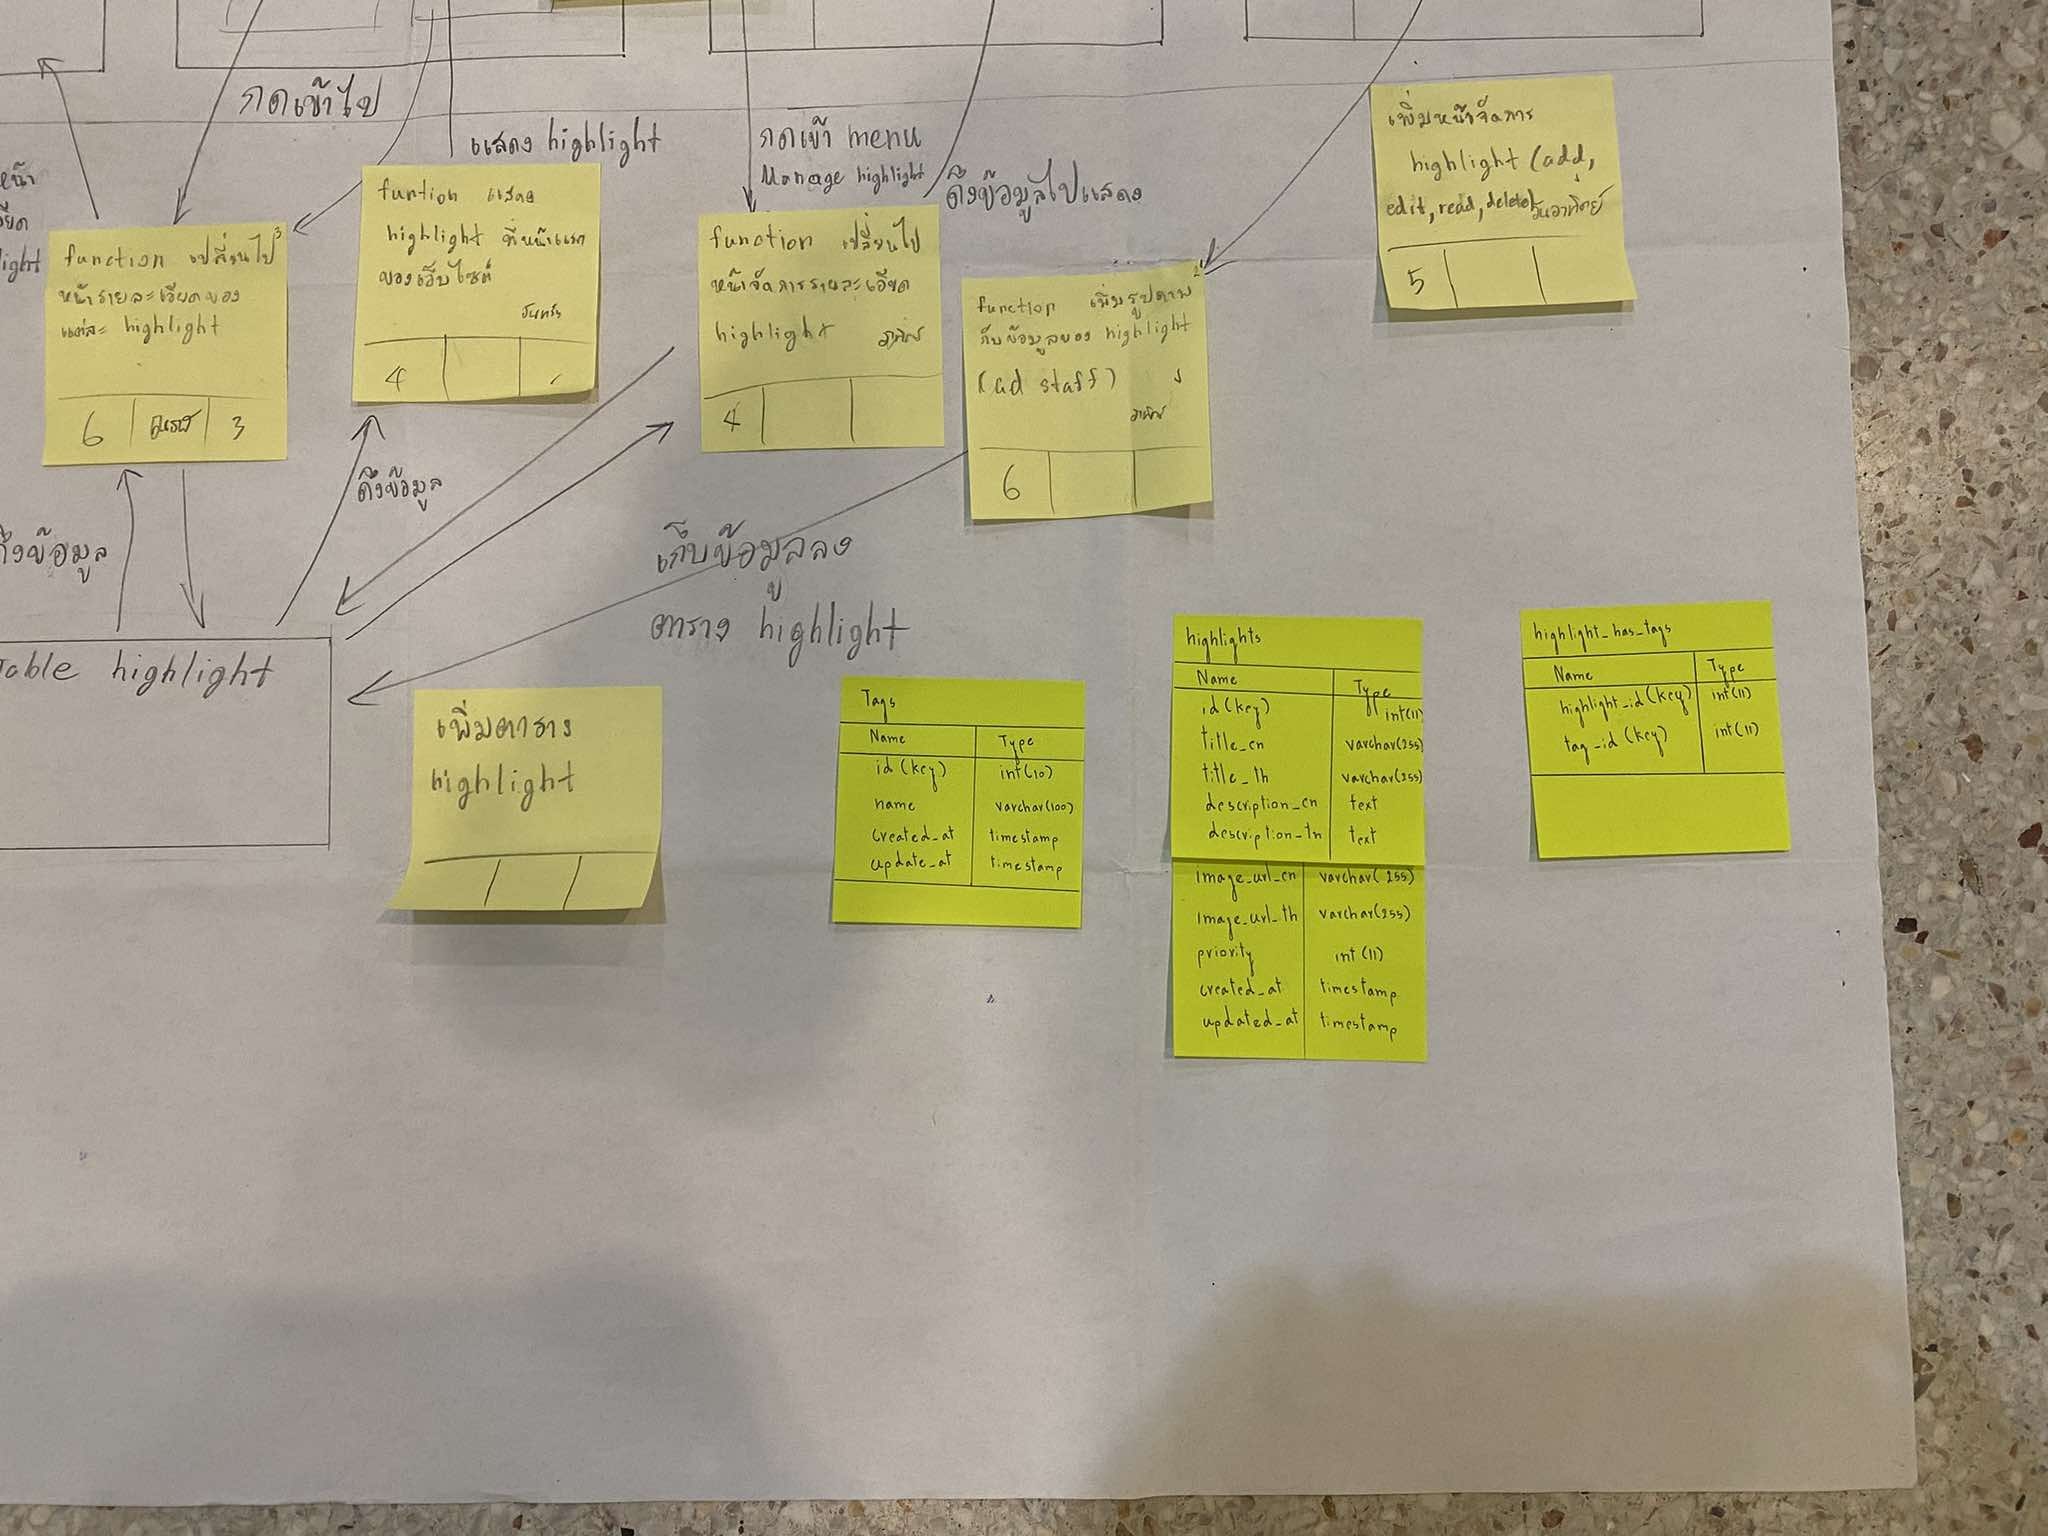 กดเข้าไป
แสดง highlight
กดเข้า menu
Manage highlight
ดึงข้อมูลไปแสดง
หน้า
function เปลี่ยนไป 3
หน้ารายละเอียดของ
แต่ละ highlight
6
3
funtion แสดง
highlight ที่หน้าแรก
ของเว็บไซต์
4
function เปลี่ยนไป
หน้าจัดการรายละเอียด
highlight
4
function เพิ่มรูปภาพ
กับข้อมูลของ highlight
(ad staff)
6
เพิ่มหน้าจัดการ
highlight (add,
edit, read, delete)
วันอาทิตย์
5
ดึงข้อมูล
ดึงข้อมูล
เก็บข้อมูลลง
ตาราง highlight
Table highlight
เพิ่มตาราง
highlight
Tags
Name Type
id (key) int(10)
name varchar(100)
created_at timestamp
update_at timestamp
highlights
Name Type
id (key) int(11)
title_en varchar(255)
title_th varchar(255)
description_en text
description_th text
image_url_en varchar(255)
image_url_th varchar(255)
priority int(11)
created_at timestamp
updated_at timestamp
highlight_has_tags
Name Type
highlight_id (key) int(11)
tag_id (key) int(11)